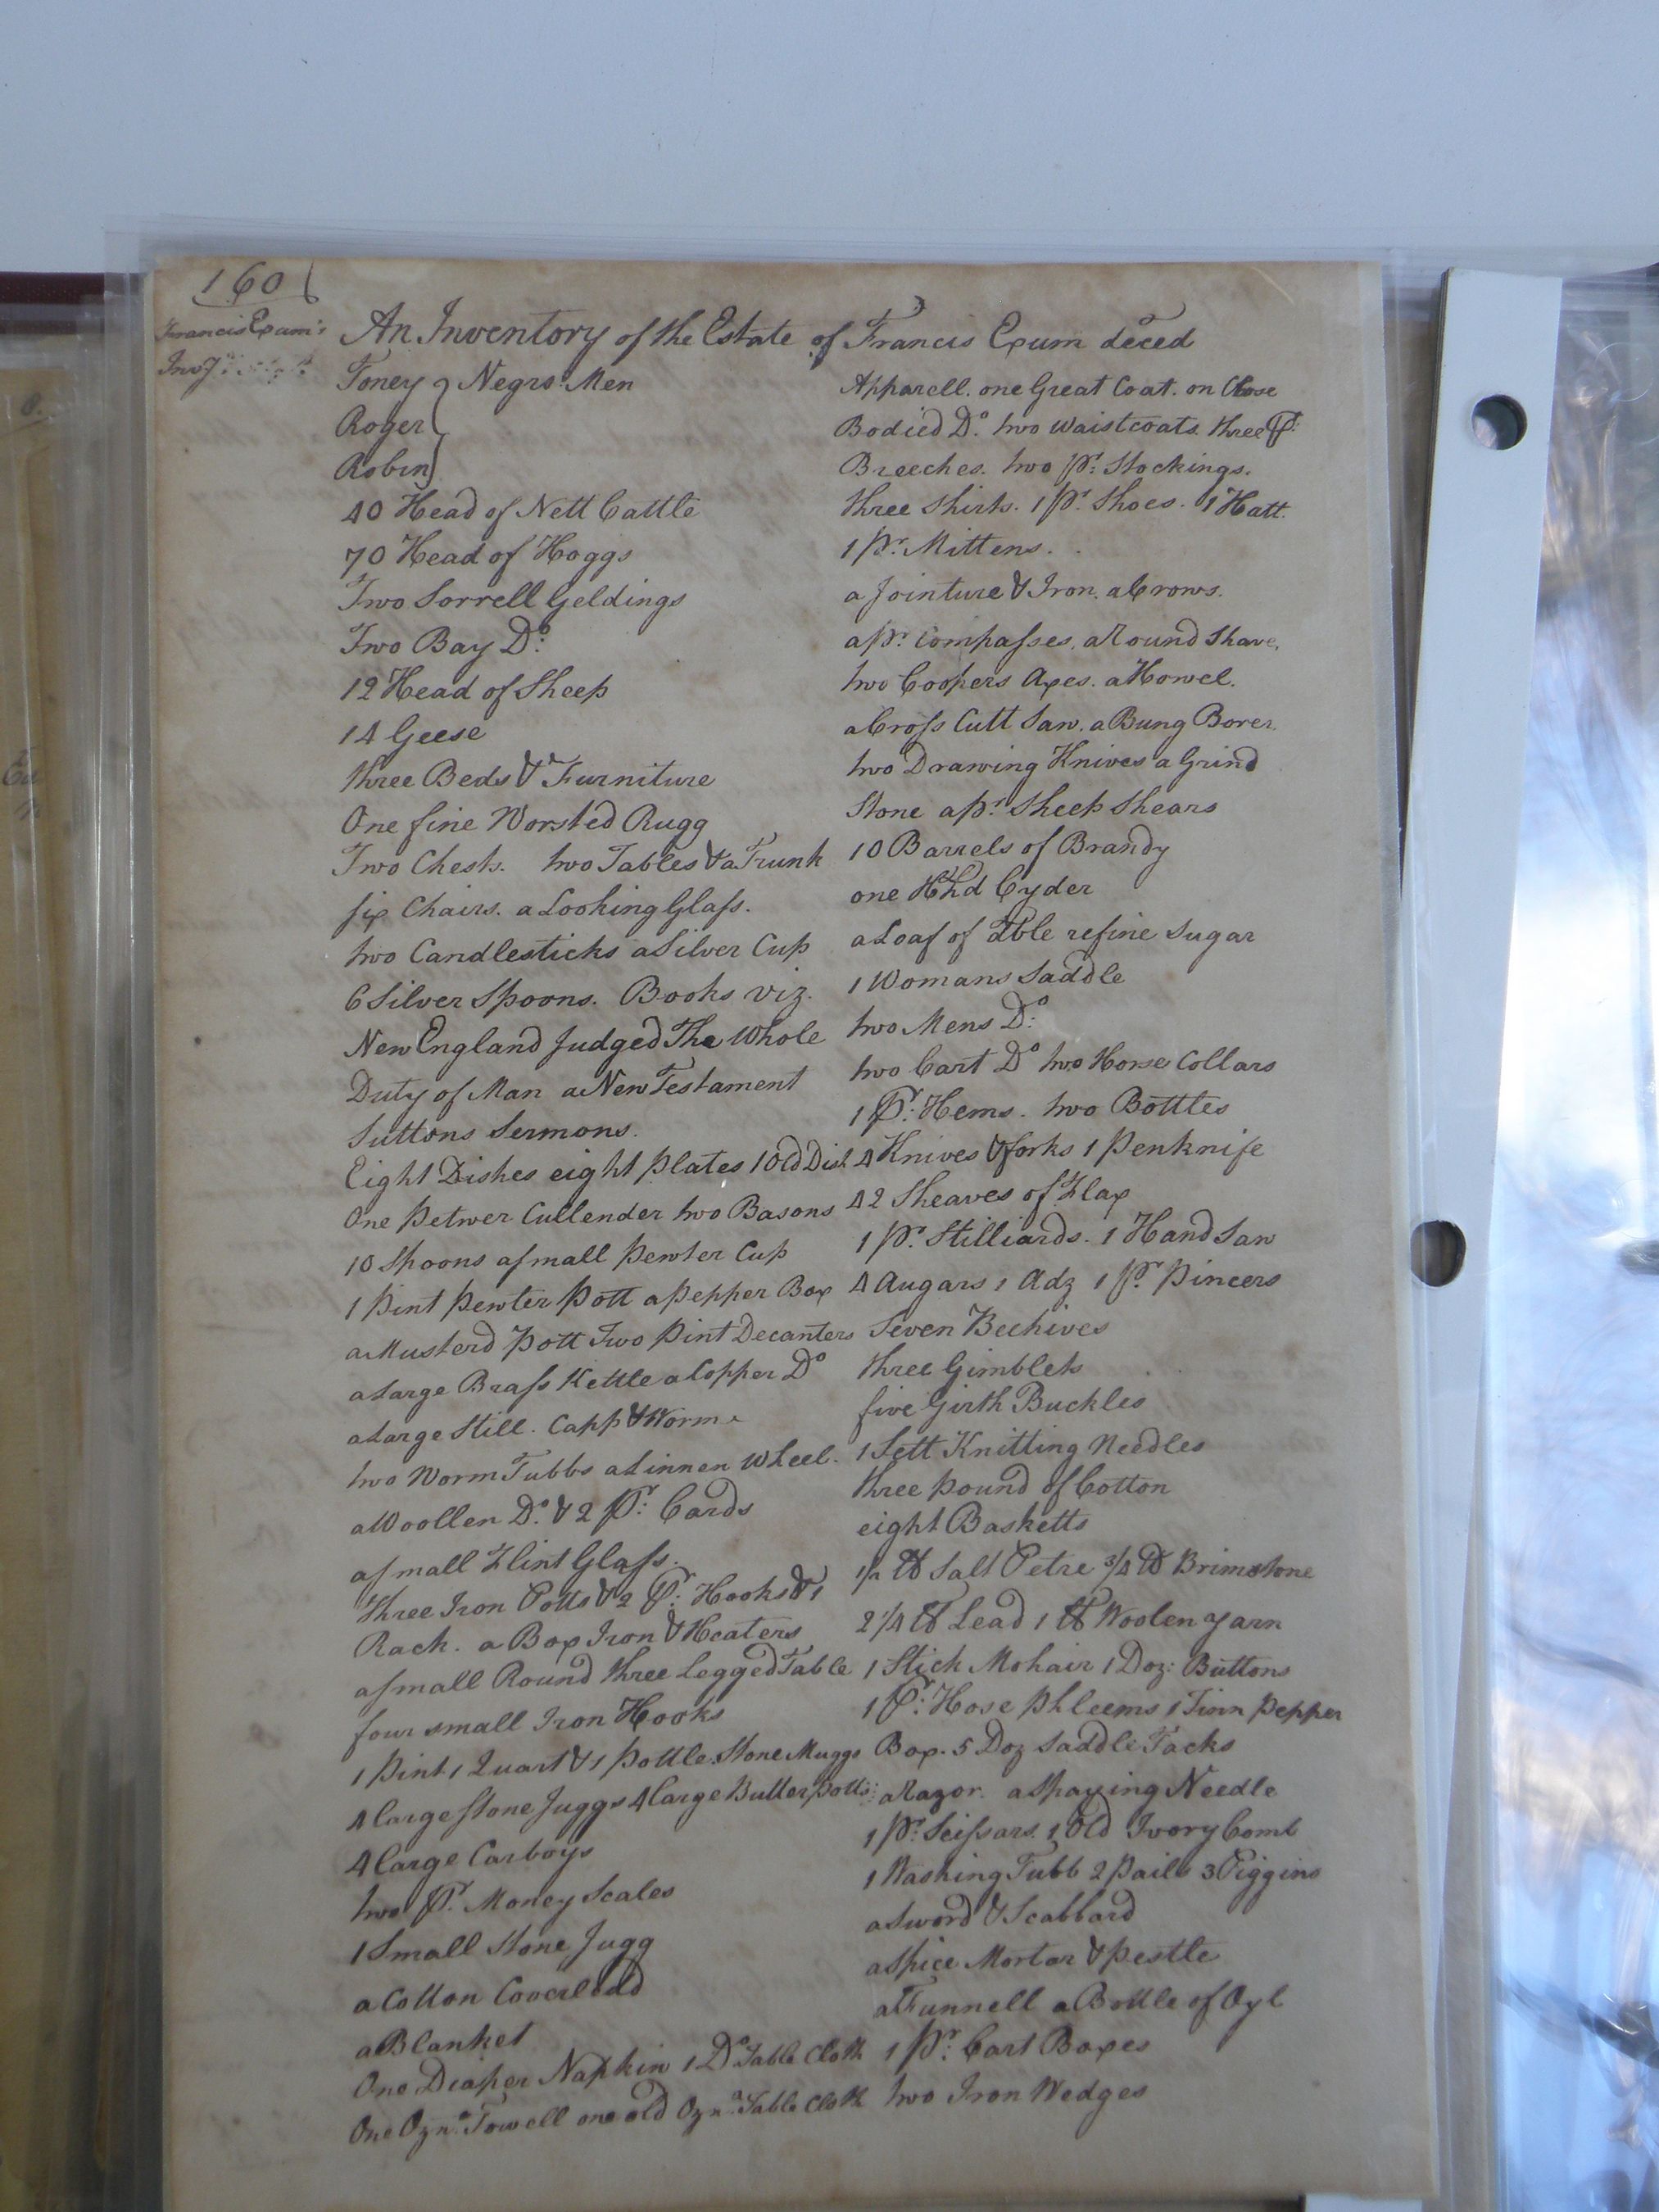 160
Francis Exum's
An Inventory of the Estate of Francis Exum deced
Toney } Negro Men
Roger
Robin
40 Head of Nett Cattle
70 Head of Hoggs
Two Sorrell Geldings
Two Bay Do.
12 Head of Sheep
14 Geese
three Beds & Furniture
One fine Worsted Rugg
Two Chests. two Tables & a Trunk
six Chairs. a Looking Glass.
two Candlesticks a Silver Cup
6 Silver Spoons. Books viz.
New England Judged The Whole
Duty of Man a New Testament
Suttons Sermons.
Eight Dishes eight plates 1 Old Dish
One petwer Cullender two Basons
10 Spoons a small pewter Cup
1 pint pewter pott a pepper Box
a Musterd pott Two pint Decanters
a Large Brass Kettle a Copper Do
a Large Still. Capp & Worm
two Worm Tubbs a Linnen wheel.
a Woollen Do. & 2 Pr. Cards
a small Flint Glass.
Three Iron Potts & 2 Pr. Hooks & 1
Rack. a Box Iron & Heaters
a small Round three Legged Table
four small Iron Hooks
1 pint 1 Quart & 1 pottle Stone Muggs
4 large stone Juggs 4 large Butter potts
4 large Carboys
two Pr. Money Scales
1 Small Stone Jugg
a Cotton Coverledd
a Blanket
One Diaper Napkin 1 Do Table Cloth
One Ozna. Towell one old Ozna. Table Cloth
Apparell. one Great Coat. on Close
Bodied Do. two waistcoats. three Pr.
Breeches. two pr. Stockings.
three Shirts. 1 pr. Shoes. 1 Hatt.
1 pr. Mittens.
a Jointure & Iron. a Crows.
a pr. Compasses. a Round Shave.
two Coopers Axes. a Howel.
a Cross Cutt Saw. a Bung Borer.
two Drawing Knives a Grind
Stone a pr. Sheep Shears
10 Barrels of Brandy
one Hhd Cyder
a Loaf of dble refine Sugar
1 Womans Saddle
two Mens Do.
two Cart Do two Horse Collars
1 Pr. Hems. two Bottles
4 Knives & forks 1 penknife
42 Sheaves of Flax
1 pr. Stilliards. 1 Hand Saw
4 Augars 1 Adz 1 pr. pincers
Seven Beehives
three Gimblets
five Girth Buckles
1 Sett Knitting Needles
three pound of Cotton
eight Basketts
1/2 lb Salt Petre 3/4 lb Brimstone
2 1/4 lb Lead 1 lb Woolen yarn
1 Stick Mohair 1 Doz: Buttons
1 Pr. Hose phleems 1 Tinn pepper
Box. 5 Doz Saddle Tacks
a Razor. a Spaying Needle
1 pr. Scissars. 1 Old Ivory Comb
1 Washing Tubb 2 pails 3 Piggins
a Sword & Scabbard
a Spice Mortar & pestle
a Funnell a Bottle of Oyl
1 pr. Cart Boxes
two Iron Wedges